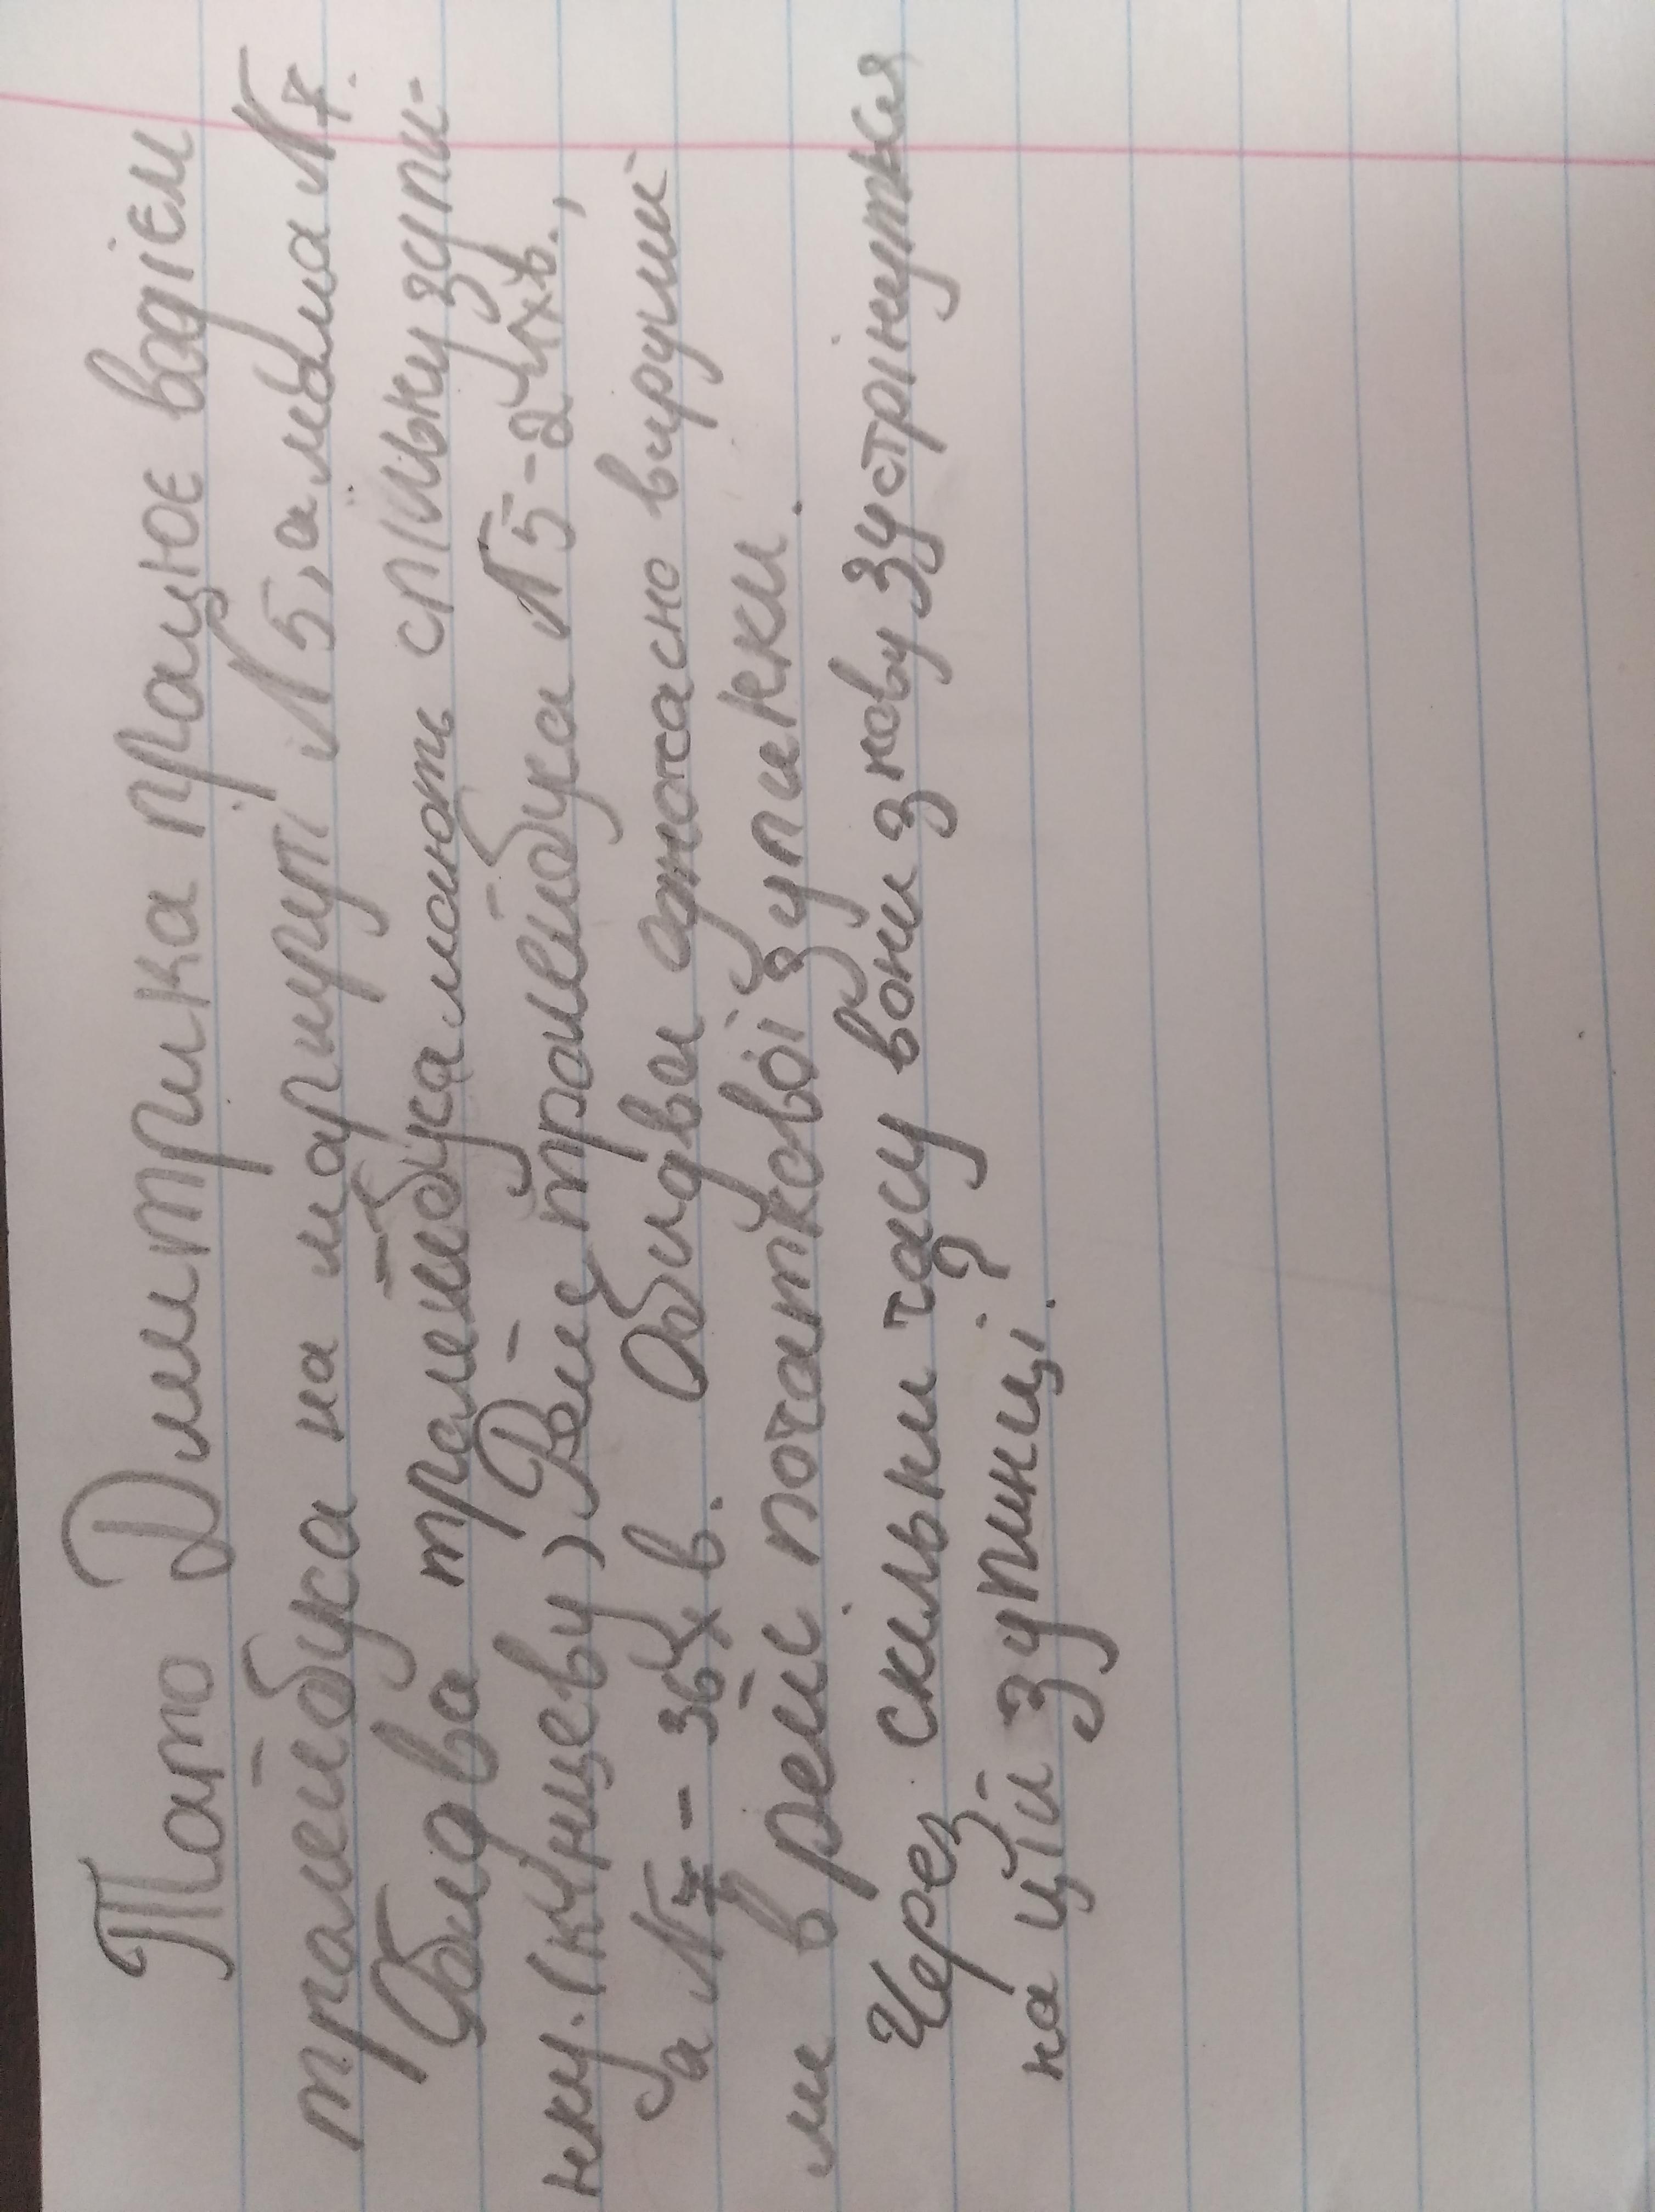 Тато Дмитрика працює водієм
тролейбуса на маршруті № 5, а мама № 7.
Обидва тролейбуса мають спільну зупи-
нку. (кінцеву) Рейс тролейбуса № 5 - 24 хв.,
а № 7 - 36 хв. Обидва одночасно вируши
ли в рейс початкової зупинки.
Через скільки часу вони знову зустрінуться
на цій зупинці?